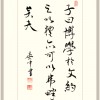 子曰博學於文約
之以禮亦可以弗畔
矣夫